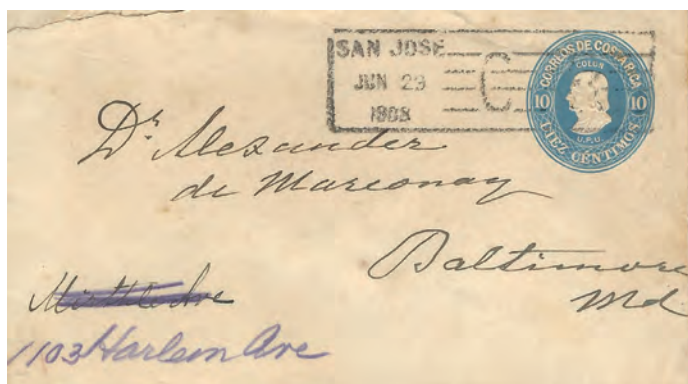 SAN JOSE
JUN 29
1908
CORREOS DE COSTA RICA
COLON
10 10
U.P.U.
DIEZ CÉNTIMOS
Dr Alexander
de Marconay
Baltimore
Md.
1103 Harlem Ave